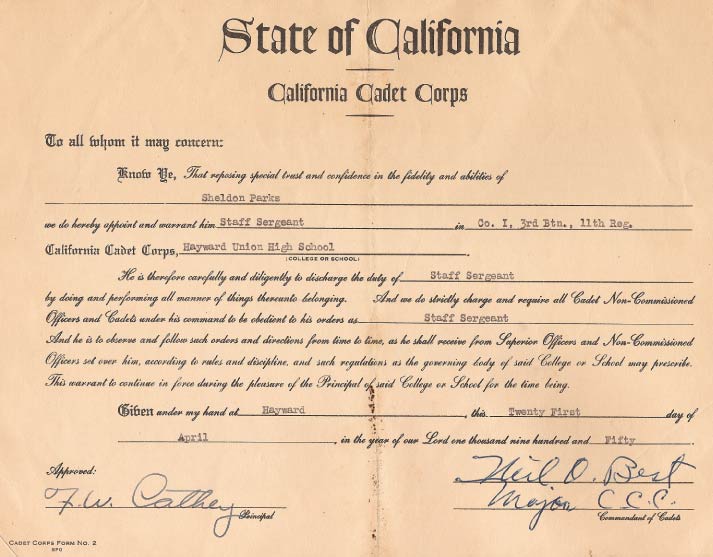 State of California
California Cadet Corps
To all whom it may concern:
Know Ye, That reposing special trust and confidence in the fidelity and abilities of
Sheldon Parks
we do hereby appoint and warrant him Staff Sergeant in Co. I, 3rd Btn., 11th Reg.
California Cadet Corps, Hayward Union High School
(COLLEGE OR SCHOOL)
He is therefore carefully and diligently to discharge the duty of Staff Sergeant
by doing and performing all manner of things thereunto belonging. And we do strictly charge and require all Cadet Non-Commissioned
Officers and Cadets under his command to be obedient to his orders as Staff Sergeant
And he is to observe and follow such orders and directions from time to time, as he shall receive from Superior Officers and Non-Commissioned
Officers set over him, according to rules and discipline, and such regulations as the governing body of said College or School may prescribe.
This warrant to continue in force during the pleasure of the Principal of said College or School for the time being.
Given under my hand at Hayward, this Twenty First day of
April, in the year of our Lord one thousand nine hundred and Fifty.
Approved:
F. W. Cathey
Principal
Neil O. Best
Major C.C.C.
Commandant of Cadets
CADET CORPS FORM NO. 2
SPO